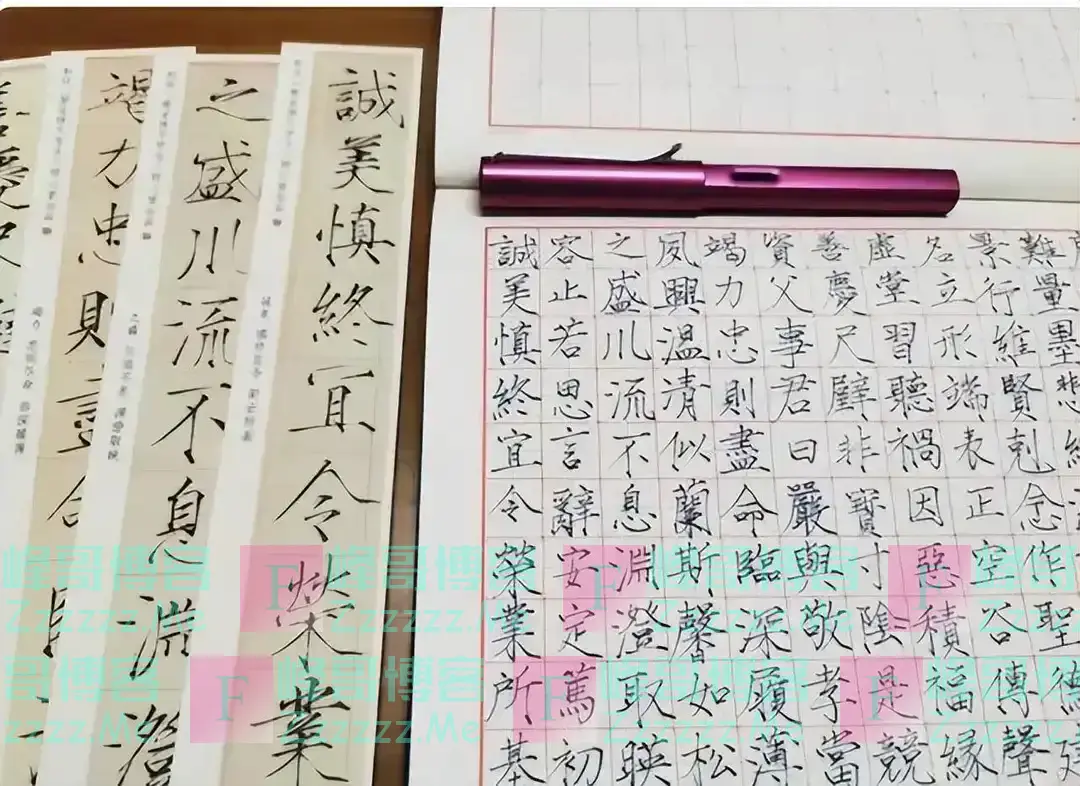 難量墨悲
景行維賢剋念作聖德建
名立形端表正空谷傳聲
虛堂習聽禍因惡積福緣
善慶尺璧非寶寸陰是競
資父事君曰嚴與敬孝當
竭力忠則盡命臨深履薄
夙興溫清似蘭斯馨如松
之盛川流不息淵澄取暎
容止若思言辭安定篤初
誠美慎終宜令榮業所基
誠美慎終宜令榮業
之盛川流不息淵澄
竭力忠則盡命
善慶尺璧
峰哥博客
Zzzzzz.Me